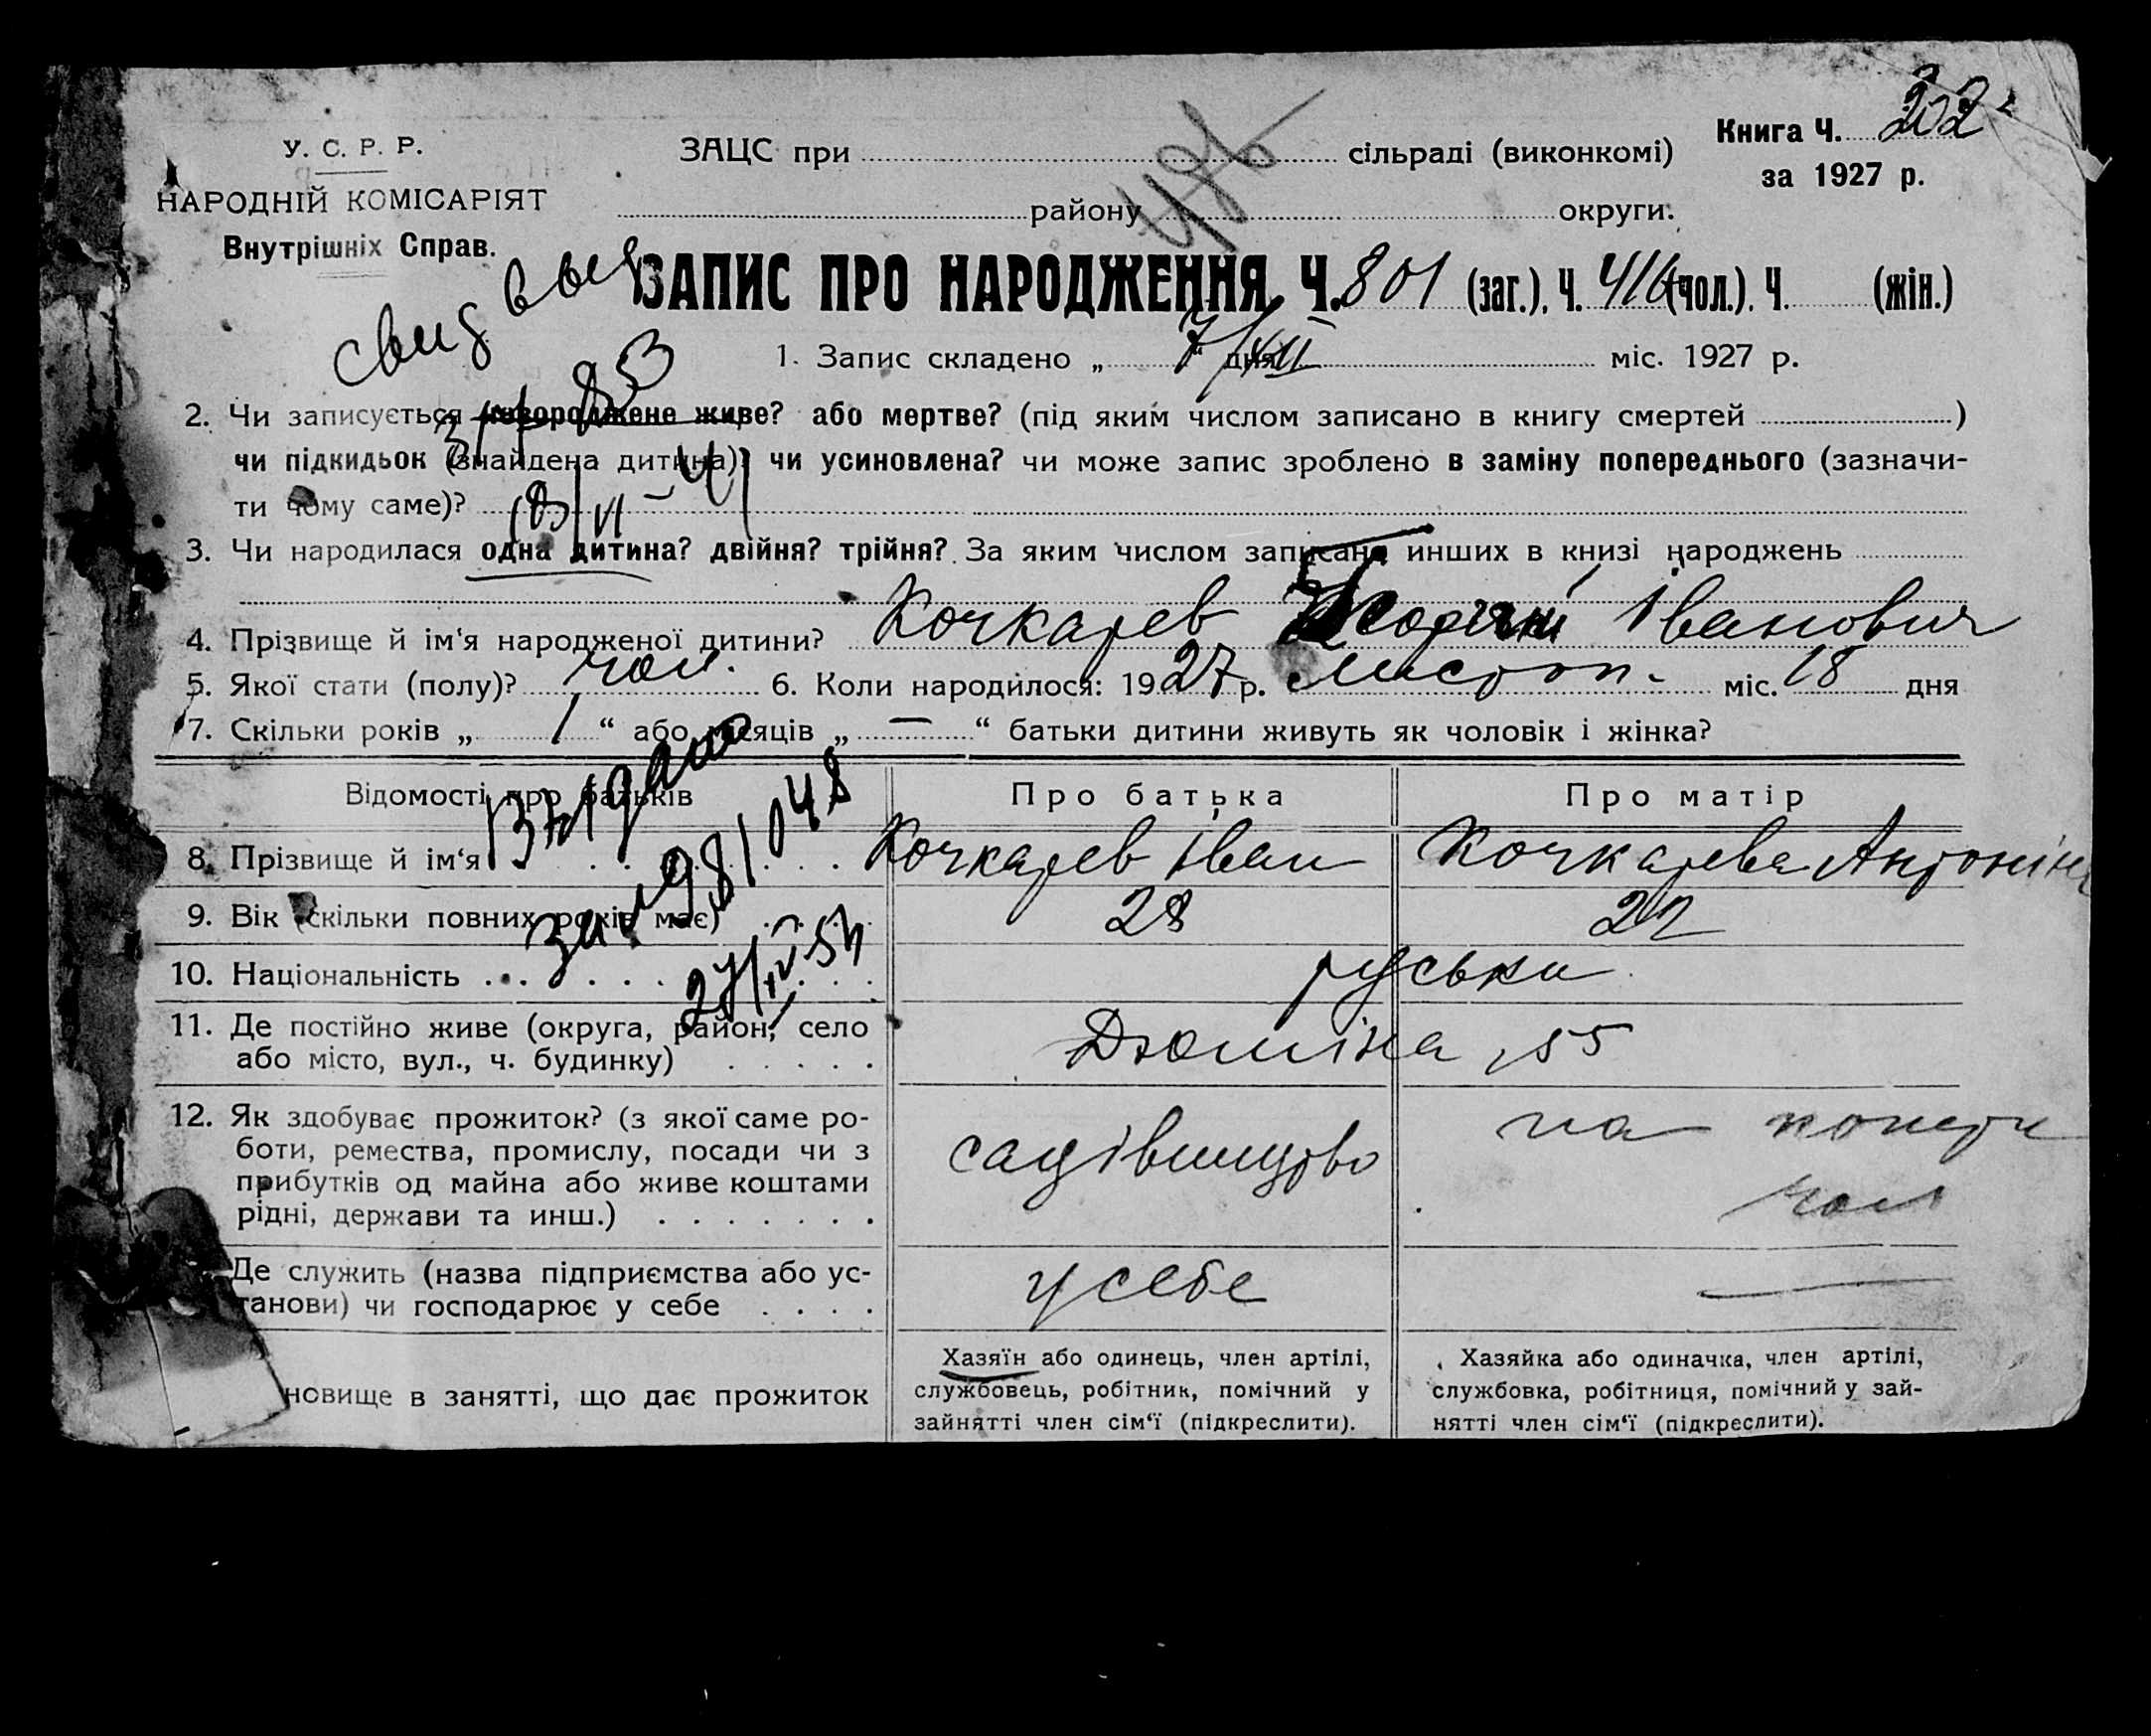 У. С. Р. Р.
НАРОДНІЙ КОМІСАРІЯТ
Внутрішніх Справ.
ЗАЦС при сільраді (виконкомі)
Книга Ч. 202
за 1927 р.
району округи.
ЗАПИС ПРО НАРОДЖЕННЯ, Ч. 801 (заг.), Ч. 416 (чол.), Ч. (жін.)
1. Запис складено „ 7/XII “ дня міс. 1927 р.
2. Чи записується новороджене живе? або мертве? (під яким числом записано в книгу смертей )
чи підкидьок (знайдена дитина)? чи усиновлена? чи може запис зроблено в заміну попереднього (зазначи-
ти чому саме)?
3. Чи народилася одна дитина? двійня? трійня? За яким числом записано инших в книзі народжень
4. Прізвище й ім‘я народженої дитини? Кочкарев Іванович
5. Якої стати (полу)? чол. 6. Коли народилося: 1927 р. Листоп. міс. 18 дня
7. Скільки років „ 1 “ або місяців „ — “ батьки дитини живуть як чоловік і жінка?
Відомості про батьків
Про батька
Про матір
8. Прізвище й ім‘я
Кочкарев Іван
Кочкарева Антоніна
9. Вік (скільки повних років має)
28
22
10. Національність
руськи
11. Де постійно живе (округа, район, село
або місто, вул., ч. будинку)
Дюміна 55
12. Як здобуває прожиток? (з якої саме ро-
боти, ремества, промислу, посади чи з
прибутків од майна або живе коштами
рідні, держави та инш.)
садівництво
на
чол
Де служить (назва підприємства або ус-
танови) чи господарює у себе
у себе
—
новище в занятті, що дає прожиток
Хазяїн або одинець, член артілі,
службовець, робітник, помічний у
зайнятті член сім‘ї (підкреслити).
Хазяйка або одиначка, член артілі,
службовка, робітниця, помічний у зай-
нятті член сім‘ї (підкреслити).
свид
Выдано
981048